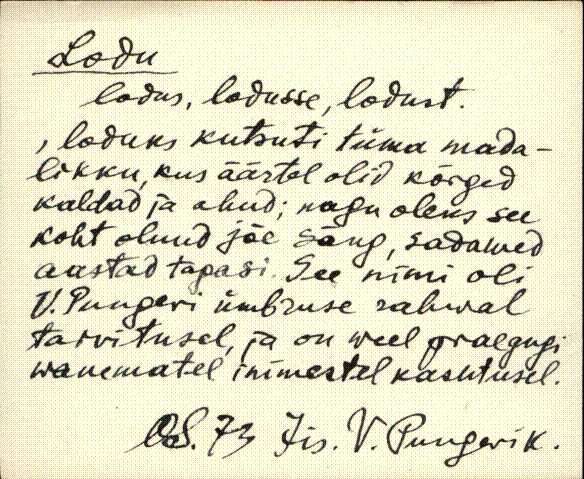 Lodu
lodus, lodusse, lodust.
, loduks kutsuti tüma mada-
likku, kus äärtel olid kõrged
kaldad ja olnd; nagu oleks see
koht olnud jõe säng, sadawed
aastad tagasi. See nimi oli
V. Pungeri ümbruse rahwal
tarvitusel, ja on weel praegugi
wanematel inimestel kashtusel.
OS. 73 Jis. V. Pungerik.